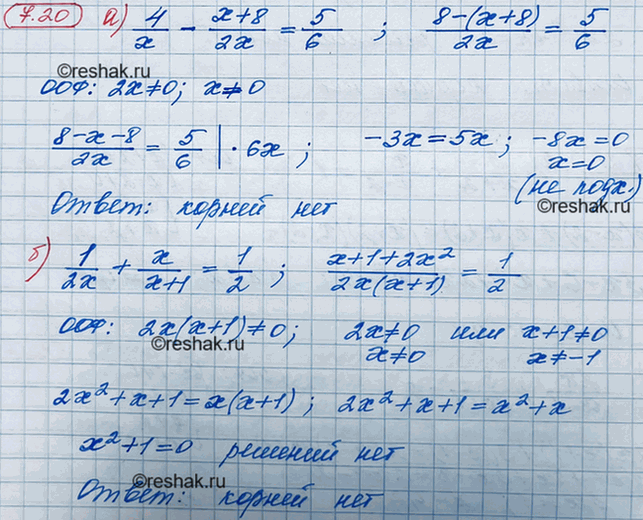 7.20 а) 4/x − (x+8)/2x = 5/6 ; (8−(x+8))/2x = 5/6
©reshak.ru
ООФ: 2x≠0; x≠0
(8−x−8)/2x = 5/6 | · 6x ; −3x=5x ; −8x=0
x=0
(не подх.)
©reshak.ru
Ответ: корней нет
б) 1/2x + x/(x+1) = 1/2 ; (x+1+2x²)/2x(x+1) = 1/2
ООФ: 2x(x+1)≠0; 2x≠0 или x+1≠0
©reshak.ru
x≠0 x≠−1
2x²+x+1=x(x+1) ; 2x²+x+1=x²+x
x²+1=0 решений нет
©reshak.ru
Ответ: корней нет